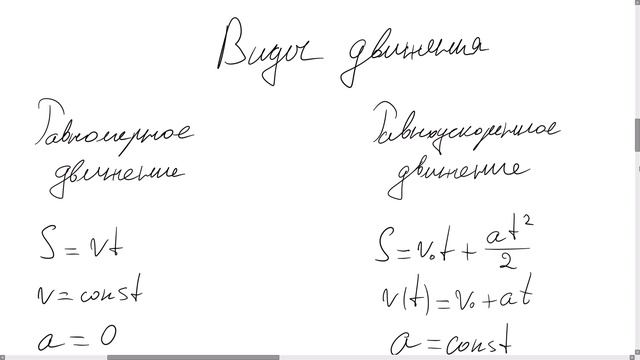 Виды движения
Равномерное
движение
S = vt
v = const
a = 0
Равноускоренное
движение
S = v₀t + at²/2
v(t) = v₀ + at
a = const